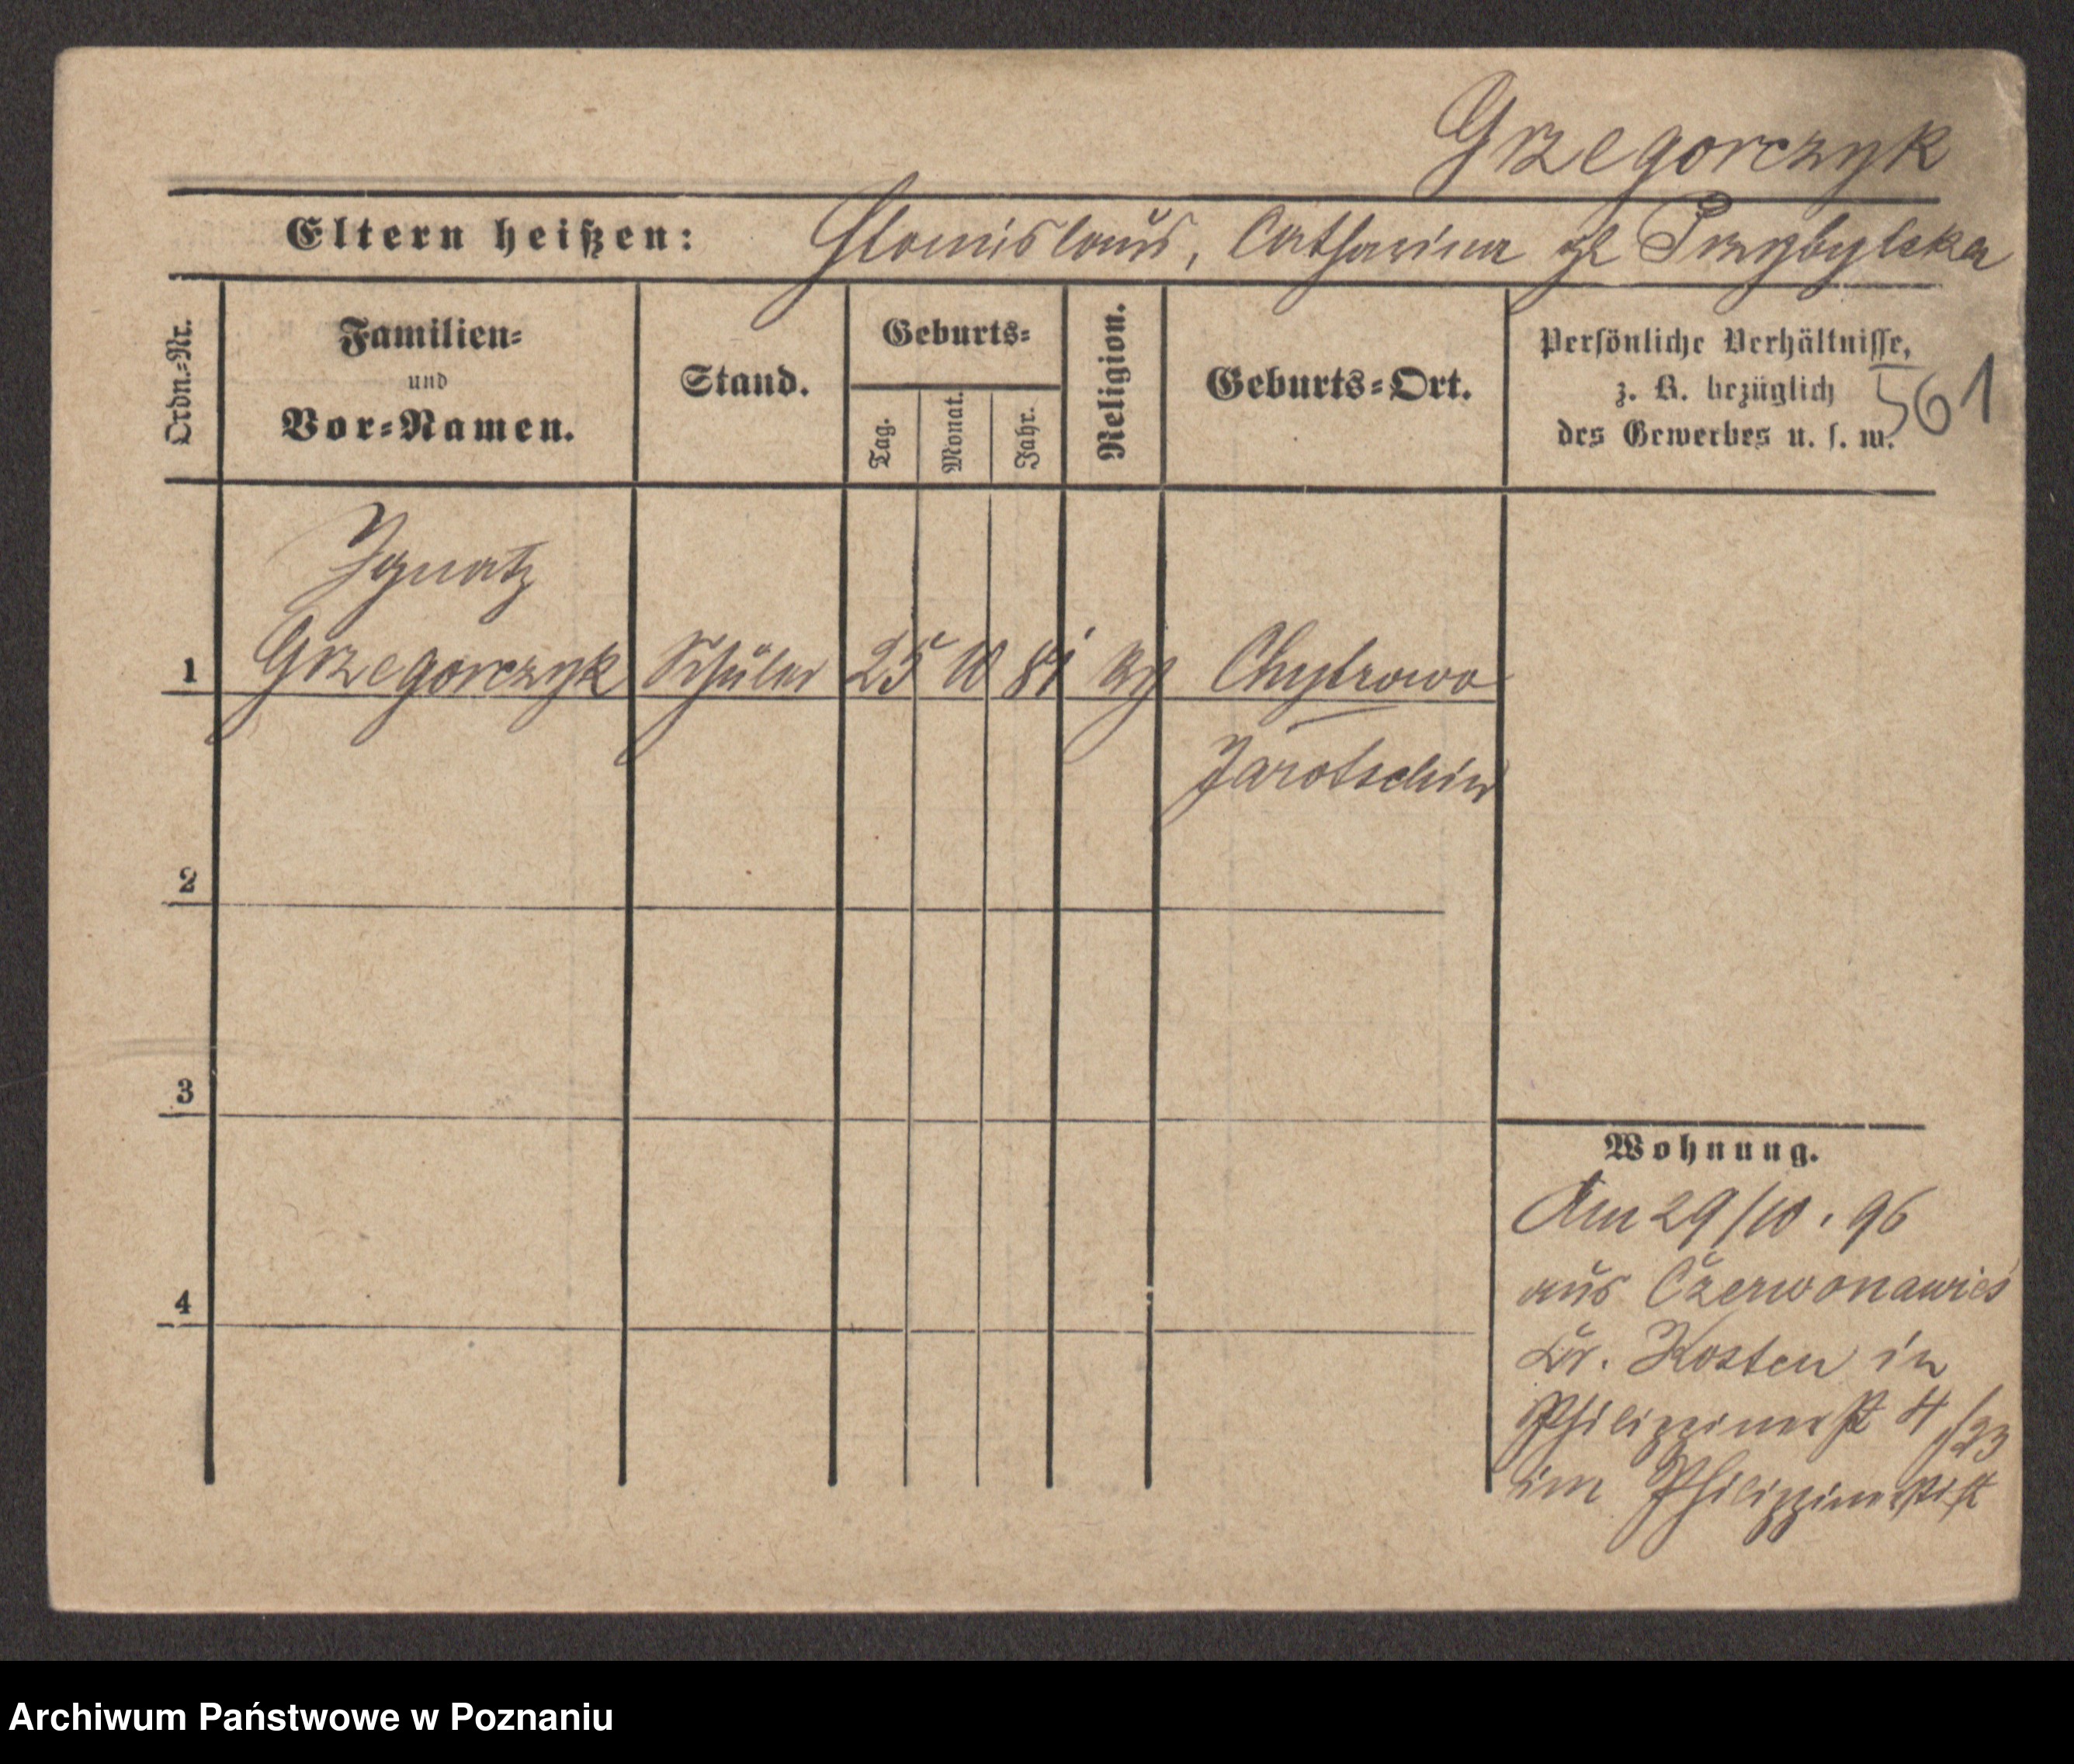 Grzegorczyk
Eltern heißen: Stanislaus, Catharina gb Przybylska
Ordn.-Nr.
Familien-
und
Vor-Namen.
Stand.
Geburts-
Tag.
Monat.
Jahr.
Religion.
Geburts-Ort.
Persönliche Verhältnisse,
z. B. bezüglich
des Gewerbes u. s. w.
561
Ignatz
1 Grzegorczyk Schüler 25 10 81 Chytrowo
Jarotschin
2
3
4
Wohnung.
Am 29/10. 96
aus Czerwonawies
Kr. Kosten in
Philippinerst 4/23
im Philippinerstift
Archiwum Państwowe w Poznaniu